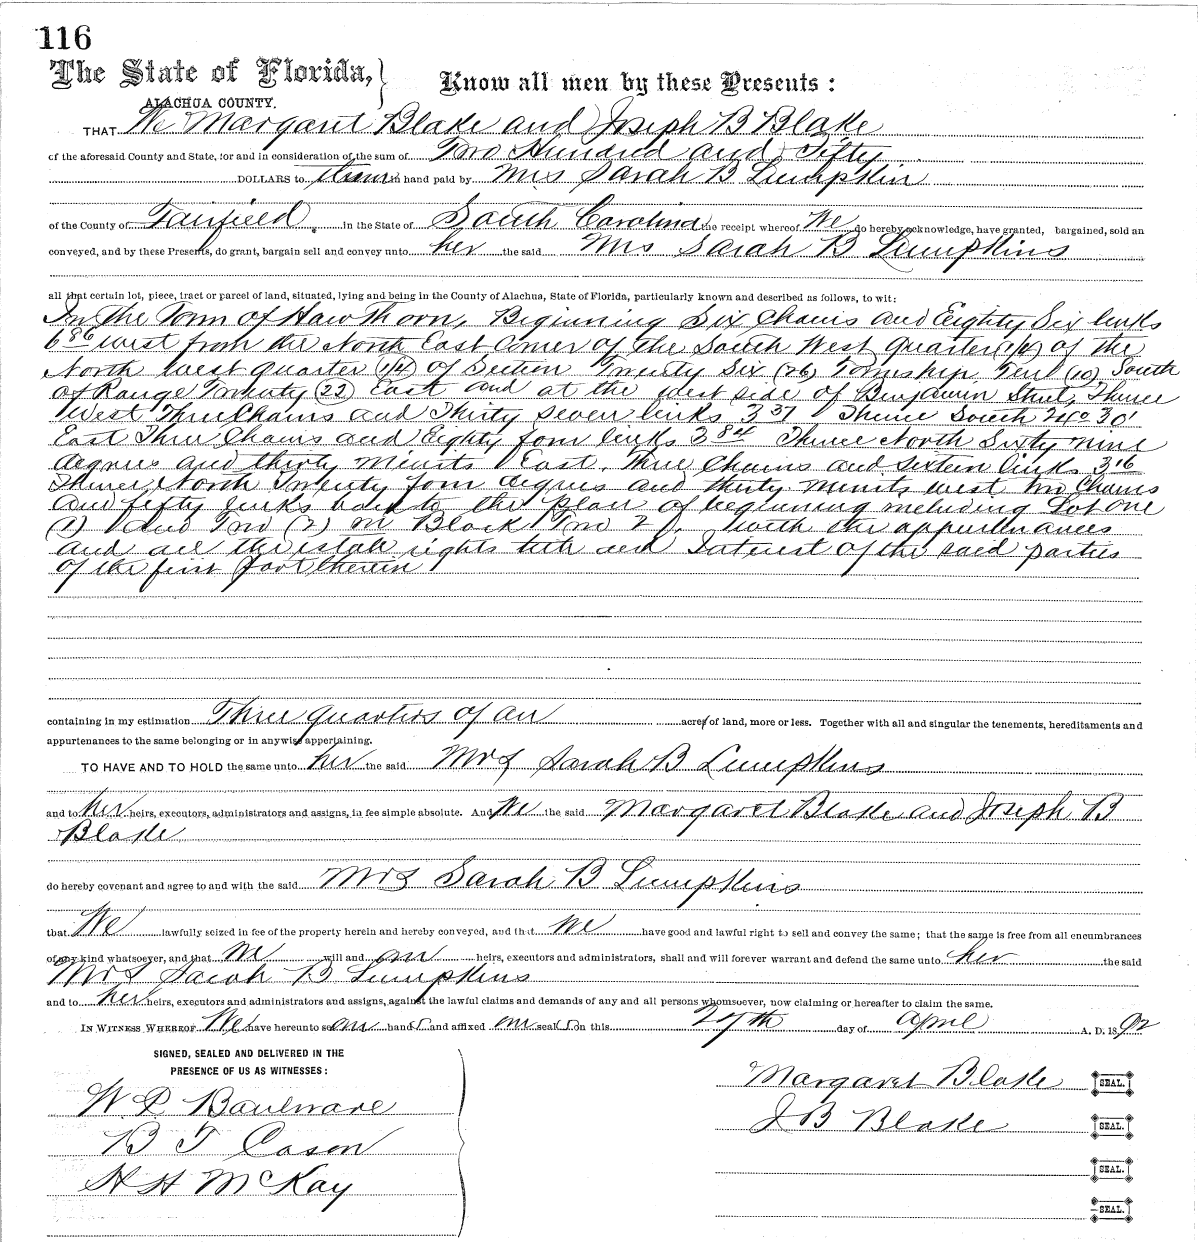 116
The State of Florida, } Know all men by these Presents:
ALACHUA COUNTY.
THAT We Margaret Blake and Joseph B Blake
of the aforesaid County and State, for and in consideration of the sum of Two Hundred and Fifty
DOLLARS to them in hand paid by Mrs Sarah B Lumpkin
of the County of Fairfield in the State of South Carolina the receipt whereof We do hereby acknowledge, have granted, bargained, sold an
conveyed, and by these Presents, do grant, bargain sell and convey unto her the said Mrs Sarah B Lumpkins
all that certain lot, piece, tract or parcel of land, situated, lying and being in the County of Alachua, State of Florida, particularly known and described as follows, to wit:
In the Town of Hawthorn, Beginning Six Chains and Eighty Six links
6 86 west from the North East Corner of the South West quarter (1/4) of the
North West quarter (1/4) of Section Twenty Six (26) Township Ten (10) South
of Range Twenty (22) East and at the west side of Benjamin Street Thence
West Three Chains and Thirty seven links 3 37 Thence South 24° 30'
East Three Chains and Eighty four links 3 84 Thence North Sixty nine
degrees and thirty Minits East. Three Chains and sixteen links 3 16
Thence North Twenty four degrees and thirty minits west two Chains
and fifty links back to the place of beginning including Lot one
(1) and Two (2) in Block Two 2). with the appurtenances
and all the estate rights title and Interest of the said parties
of the first part therein
containing in my estimation Three quarters of an acre of land, more or less. Together with all and singular the tenements, hereditaments and
appurtenances to the same belonging or in anywise appertaining.
TO HAVE AND TO HOLD the same unto her the said Mrs Sarah B Lumpkins
and to her heirs, executors, administrators and assigns, in fee simple absolute. And We the said Margaret Blake and Joseph B
Blake
do hereby covenant and agree to and with the said Mrs Sarah B Lumpkins
that We lawfully seized in fee of the property herein and hereby conveyed, and that we have good and lawful right to sell and convey the same; that the same is free from all encumbrances
of any kind whatsoever, and that we will and our heirs, executors and administrators, shall and will forever warrant and defend the same unto her the said
Mrs Sarah B Lumpkins
and to her heirs, executors and administrators and assigns, against the lawful claims and demands of any and all persons whomsoever, now claiming or hereafter to claim the same.
IN WITNESS WHEREOF We have hereunto set our hands and affixed our seals on this 27th day of April A. D. 1892
SIGNED, SEALED AND DELIVERED IN THE
PRESENCE OF US AS WITNESSES:
Margaret Blake SEAL.
W P Boulware
J B Blake SEAL.
B T Cason
SEAL.
H H McKay
SEAL.